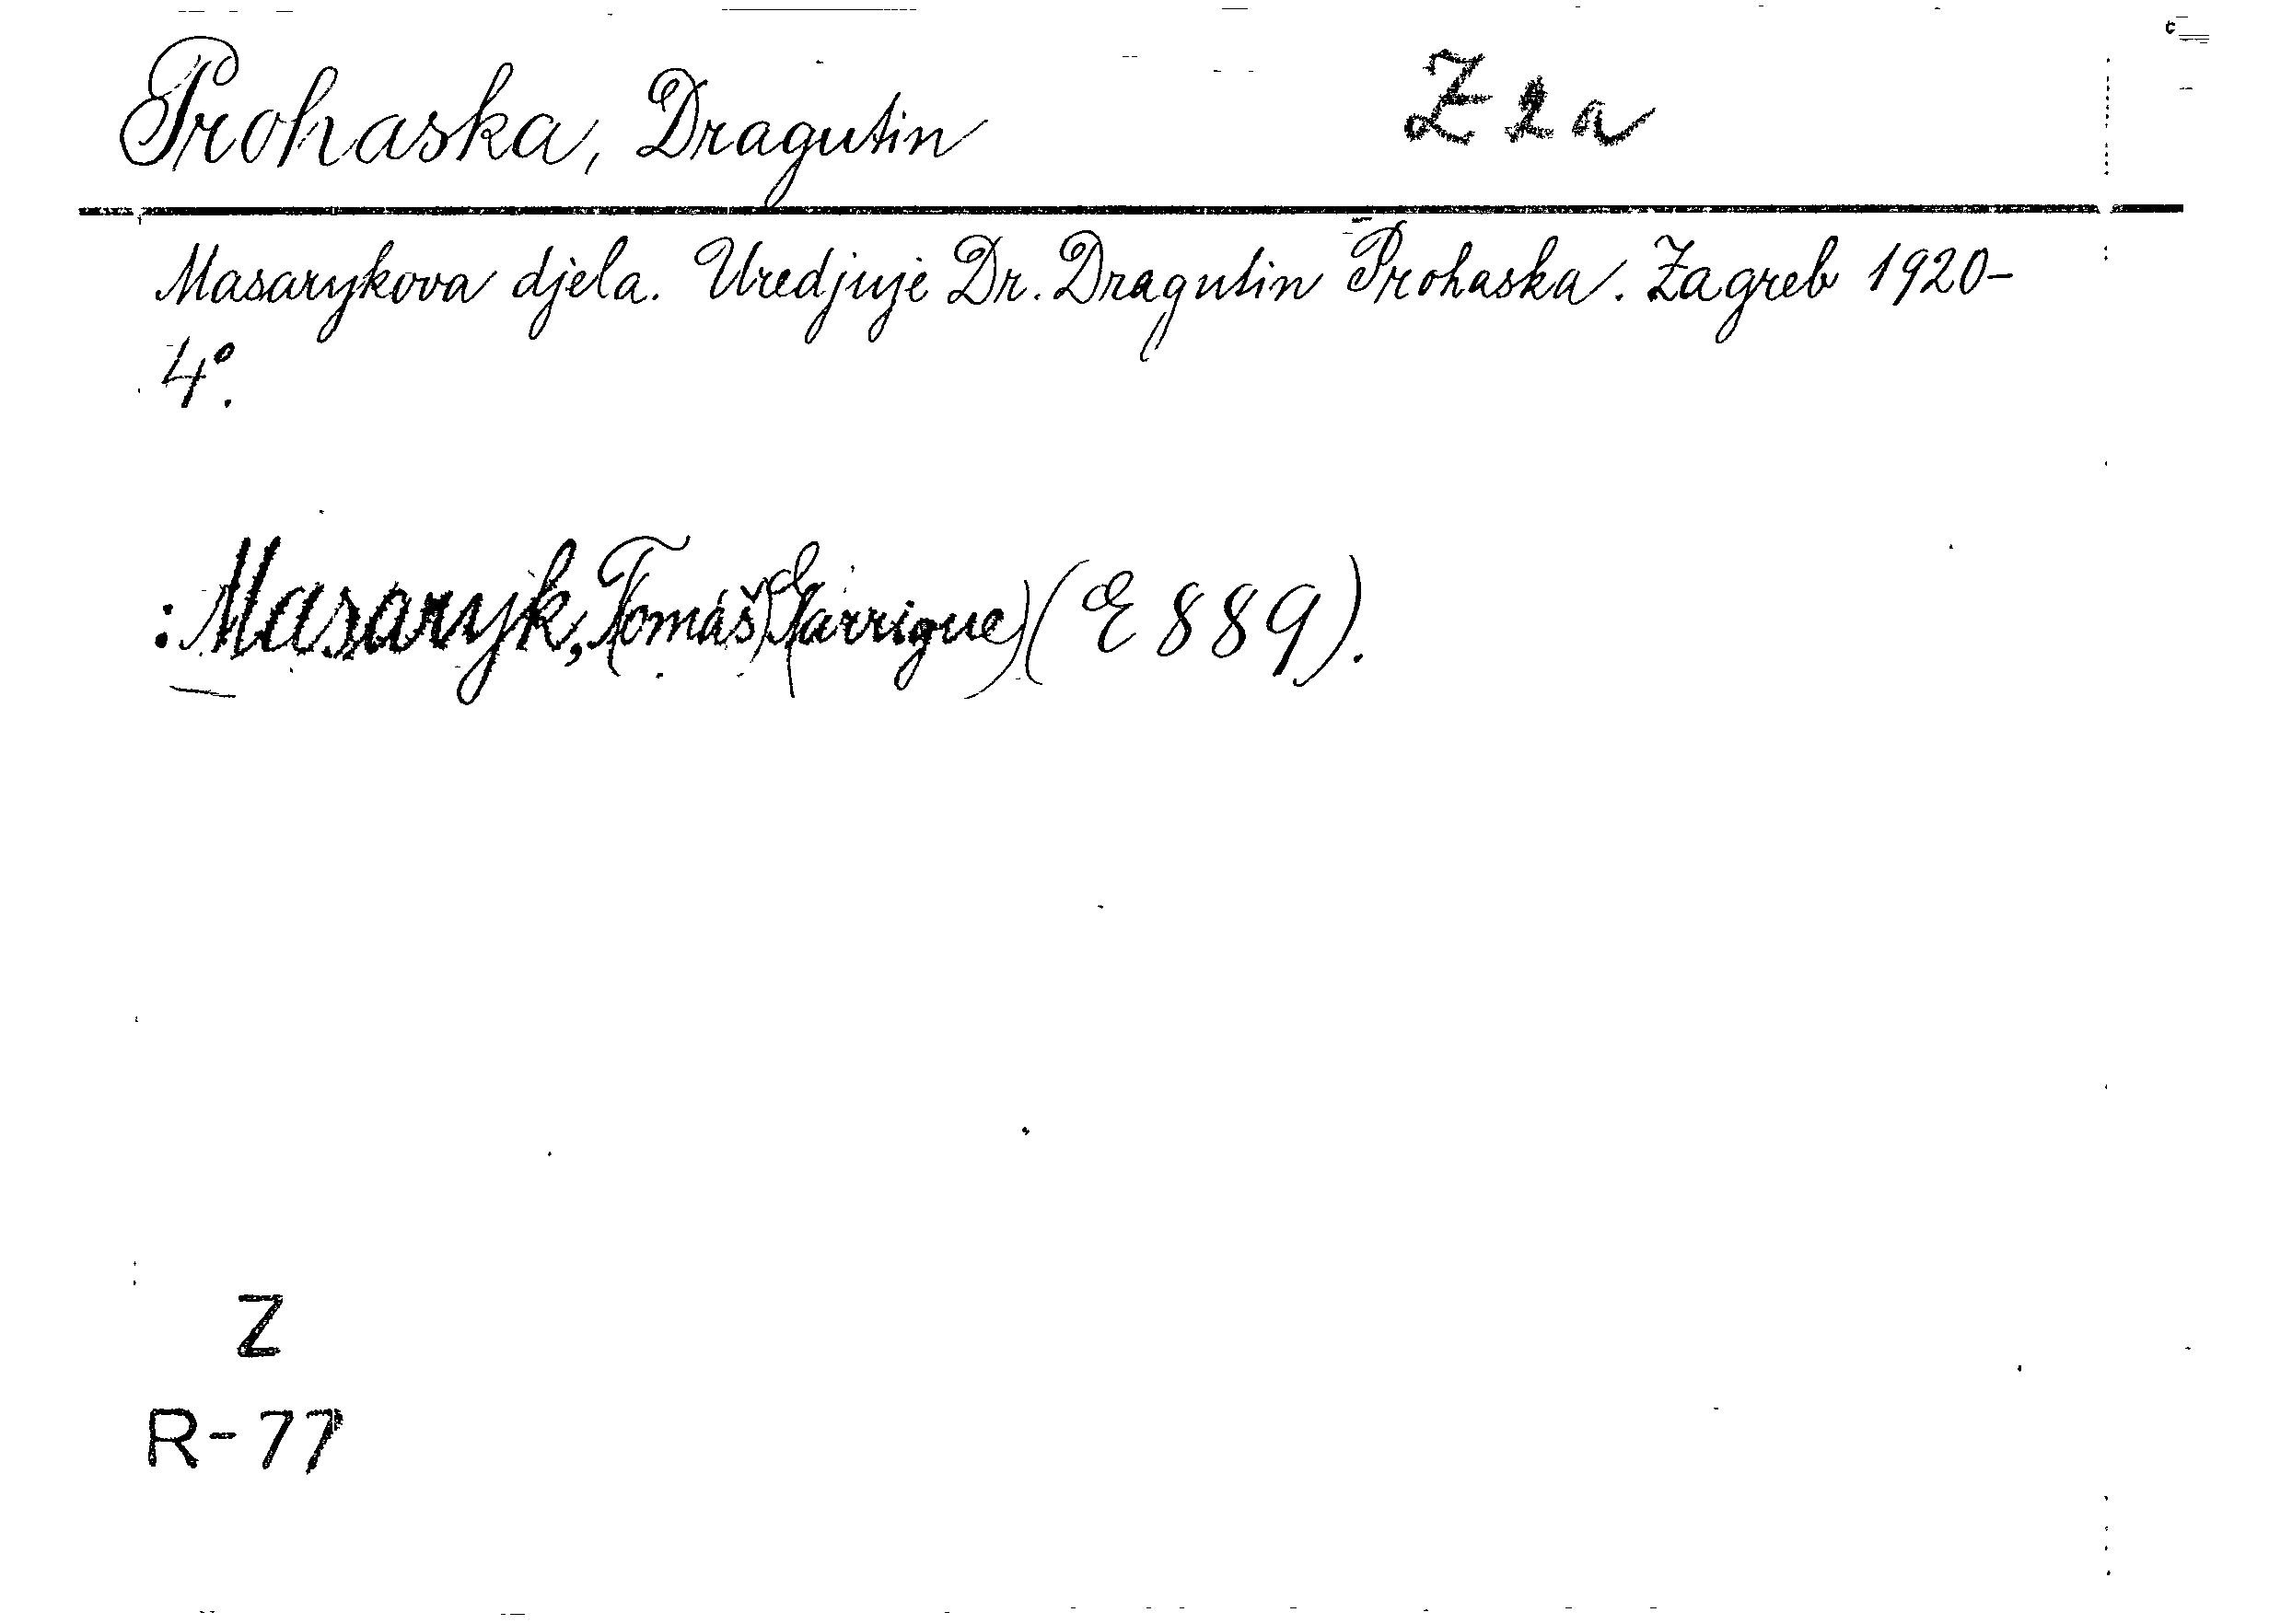 Prohaska, Dragutin Z 2 a
Masarykova djela. Uredjuje Dr. Dragutin Prohaska. Zagreb 1920-
4°.
: Masaryk, Tomáš (Garrigue) (E 889).
Z
R-77